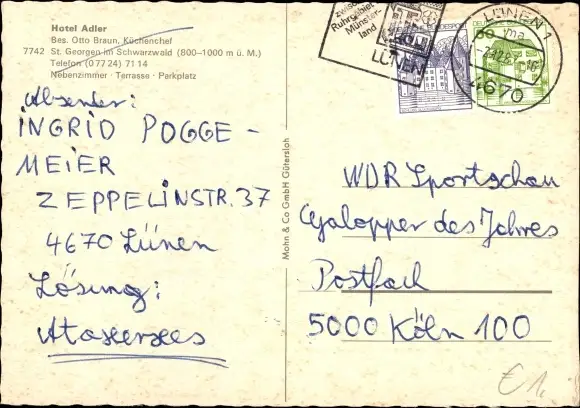 Hotel Adler
Bes. Otto Braun, Küchenchef
7742 St. Georgen im Schwarzwald (800–1000 m ü. M.)
Telefon (07724) 7114
Nebenzimmer · Terrasse · Parkplatz
Absender:
INGRID POGGE-
MEIER
ZEPPELINSTR. 37
4670 Lünen
Lösung:
Ataxerxes
Mohn & Co GmbH Gütersloh
Ruhrgebiet
Münster-
land
LÜNEN
LÜNEN 1
4670
WDR Sportschau
Galopper des Jahres
Postfach
5000 Köln 100
€ 1,